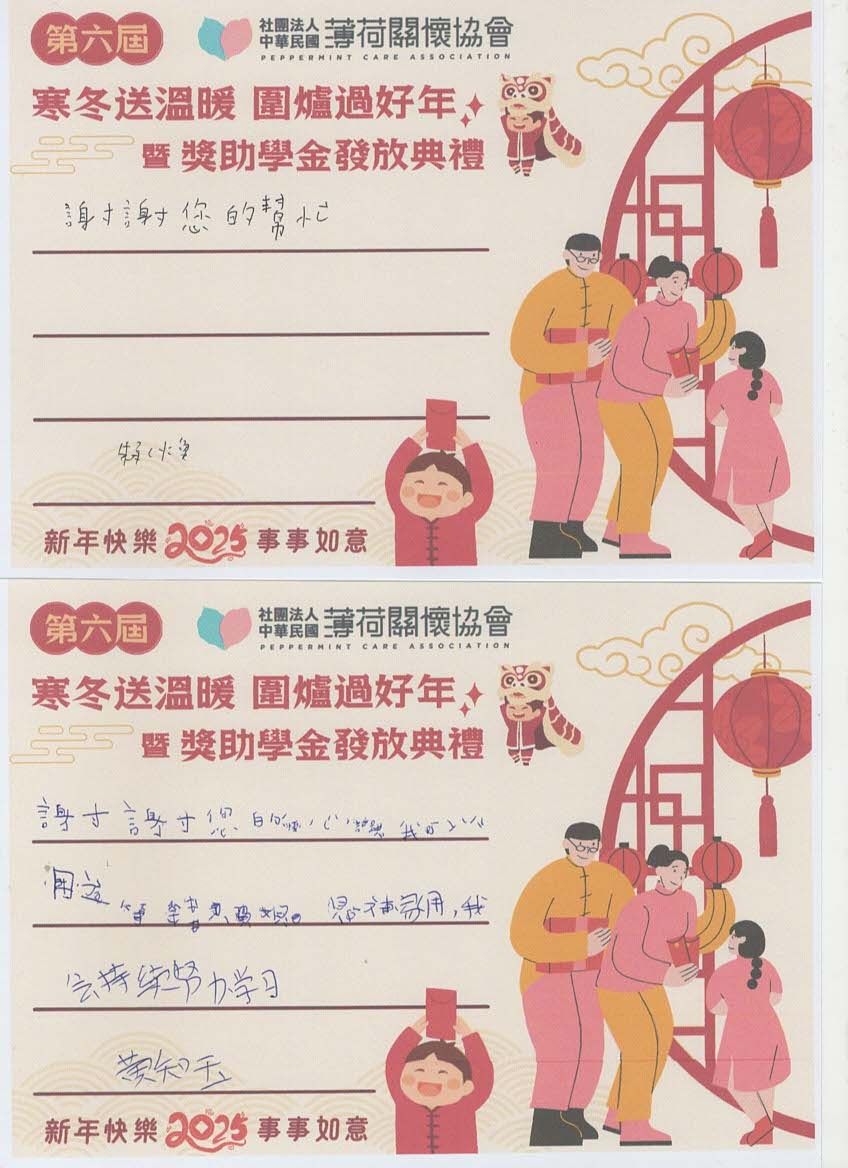 第六屆
社團法人
中華民國
薄荷關懷協會
PEPPERMINT CARE ASSOCIATION
寒冬送溫暖 圍爐過好年
暨 獎助學金發放典禮
謝謝您的幫忙
新年快樂 2025 事事如意
第六屆
社團法人
中華民國
薄荷關懷協會
PEPPERMINT CARE ASSOCIATION
寒冬送溫暖 圍爐過好年
暨 獎助學金發放典禮
謝謝您的愛心，讓我可以
用這筆 , 我
会持续努力学习
黃知玉
新年快樂 2025 事事如意